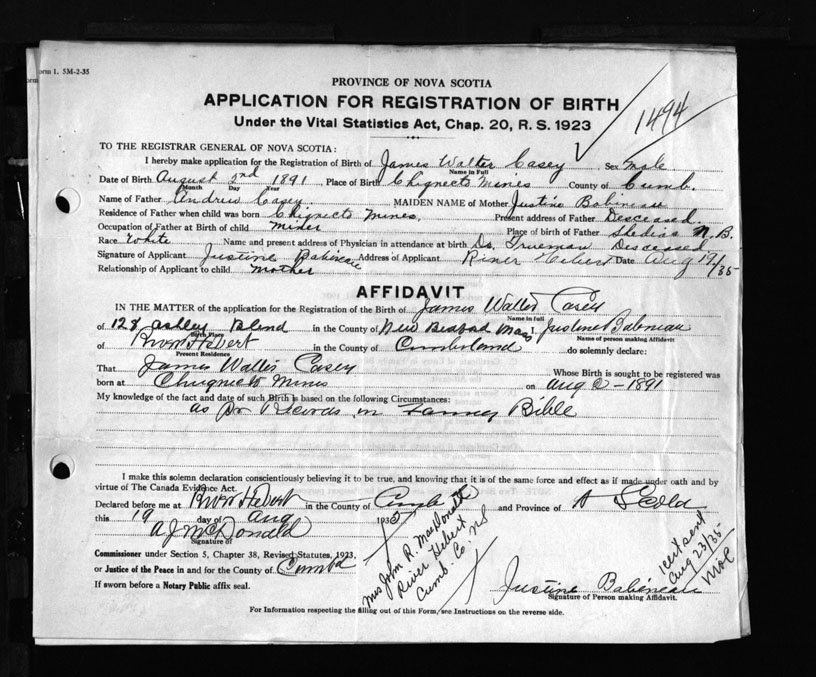 orm 1. 5M-2-35
PROVINCE OF NOVA SCOTIA
APPLICATION FOR REGISTRATION OF BIRTH
Under the Vital Statistics Act, Chap. 20, R. S. 1923
1494
TO THE REGISTRAR GENERAL OF NOVA SCOTIA:
I hereby make application for the Registration of Birth of James Walter Casey Sex Male
Name in Full
Date of Birth August 2nd 1891 Place of Birth Chignecto Mines County of Cumb.
Month Day Year
Name of Father Andrew Casey. MAIDEN NAME of Mother Justine Babineau
Residence of Father when child was born Chignecto Mines, Present address of Father Desceased.
Occupation of Father at Birth of child Miner Place of birth of Father Shediac N.B.
Race White Name and present address of Physician in attendance at birth Dr. Trueman Desceased
Signature of Applicant Justine Babineau Address of Applicant River Hebert Date Aug 19/35
Relationship of Applicant to child mother
AFFIDAVIT
IN THE MATTER of the application for the Registration of the Birth of James Walter Casey
Name in full
of 128 Ashley in the County of New Mass I, Justine Babineau
Birth Place
Name of person making Affidavit
of River Hebert in the County of Cumberland do solemnly declare:
Present Residence
That James Walter Casey Whose Birth is sought to be registered was
born at Chignecto Mines on Aug 2 - 1891
My knowledge of the fact and date of such Birth is based on the following Circumstances:
as Pr in Bible
I make this solemn declaration conscientiously believing it to be true, and knowing that it is of the same force and effect as if made under oath and by
virtue of The Canada Evidence Act.
Declared before me at River Hebert in the County of Cumb and Province of
this 19 day of Aug 1935
A J McDonald
Signature of
Commissioner under Section 5, Chapter 38, Revised Statutes, 1923,
or Justice of the Peace in and for the County of
If sworn before a Notary Public affix seal.
Mrs John R. MacDonald
River Hebert
Cumb. Co. N.S
1 cert sent
Aug 23/35
Justine Babineau
Signature of Person making Affidavit.
For Information respecting the filling out of this Form, see Instructions on the reverse side.